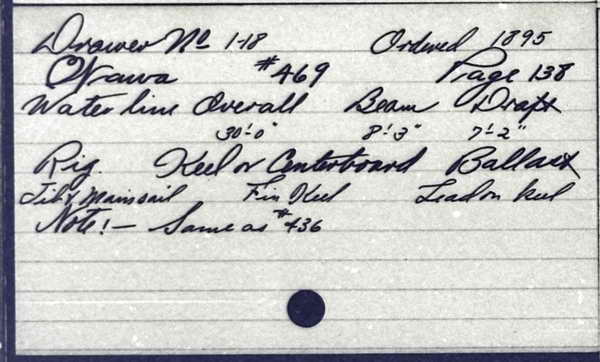 Drawer No 1-18 Ordered 1895
Okawa #469 Page 138
Water line Overall Beam Draft
30'-0" 8'-3" 7'-2"
Rig. Keel or Centerboard Ballast
Jib & Mainsail Fin Keel Lead on keel
Note! — Same as #436